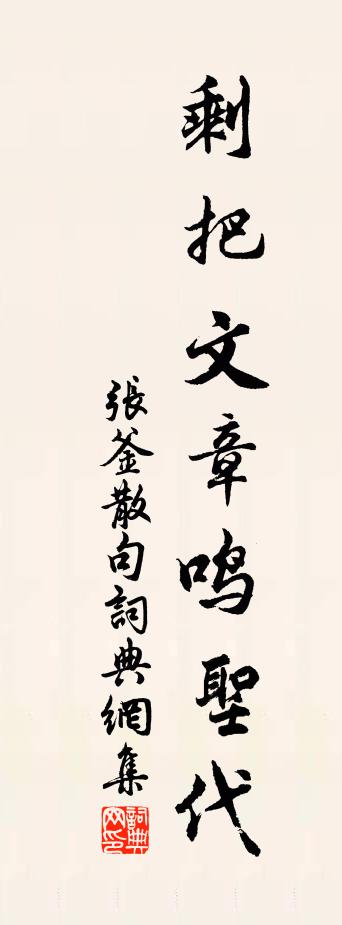 剩把文章鸣聖代
張釜散句詞典網集
詞典网印